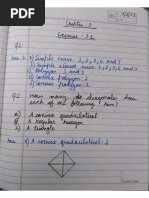 Chapter : 3
Exercise : 3.1
Q1.
Ans: 1. a) Simple curve 1,2,5,6 and 7
b) Simple closed curve 1,2,5,6 and 7
c) Polygon 1 and 2
d) Convex Polygon : 2
e) Concave Polygon : 1
Q2 How many do diagonals does
each of the following have ?
a) A convex quadrilateral
b) A regular hexagon
c) A triangle
Ans: a) A convex quadrilateral : 2